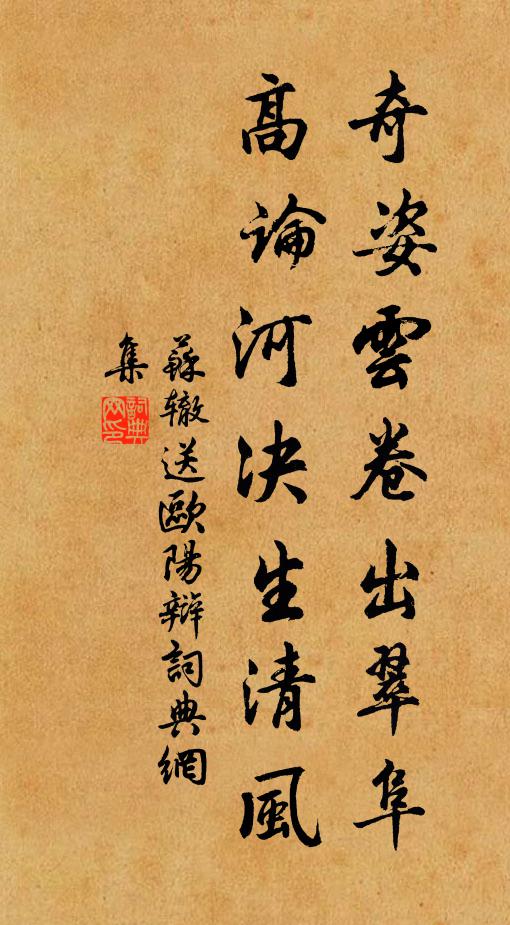 奇姿雲卷出翠阜
高論河決生清風
蘇辙送歐陽辯詞典網
集
詞典
网印